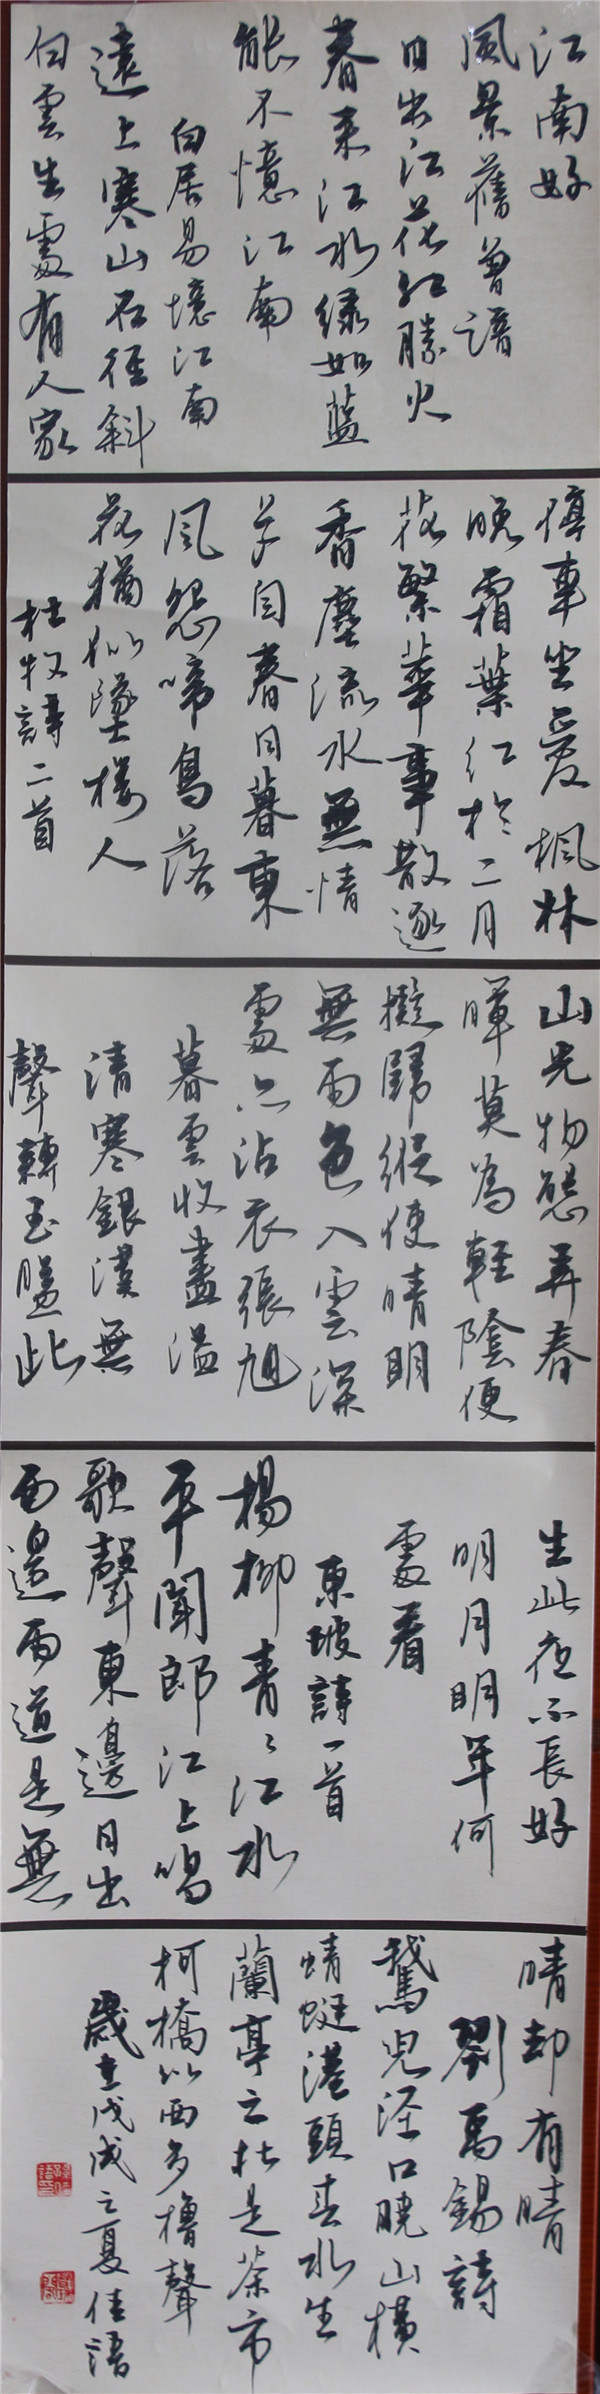 江南好
風景舊曾諳
日出江花紅勝火
春來江水綠如藍
能不憶江南
白居易憶江南
遠上寒山石徑斜
白雲生處有人家
停車坐愛楓林
晚霜葉红於二月
花繁華事散逐
香塵流水無情
草自春日暮東
風怨啼鳥落
花猶似墜樓人
杜牧詩二首
山光物態弄春
暉莫為輕陰便
擬歸縱使晴明
無雨色入雲深
處亦沾衣張旭
暮雲收盡溢
清寒銀漢無
聲轉玉盤此
生此夜不長好
明月明年何
處看
東坡詩一首
楊柳青々江水
平聞郎江上唱
歌聲東邊日出
西邊雨道是無
晴却有晴
劉禹錫詩
鵞兒涇口曉山橫
蜻蜓港頭春水生
蘭亭之北是茶市
柯橋以西多櫓聲
歲在戊戌之夏佳語